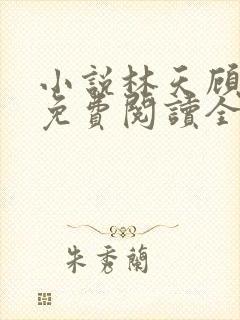 小說林天顧
免費閱讀全
朱秀蘭